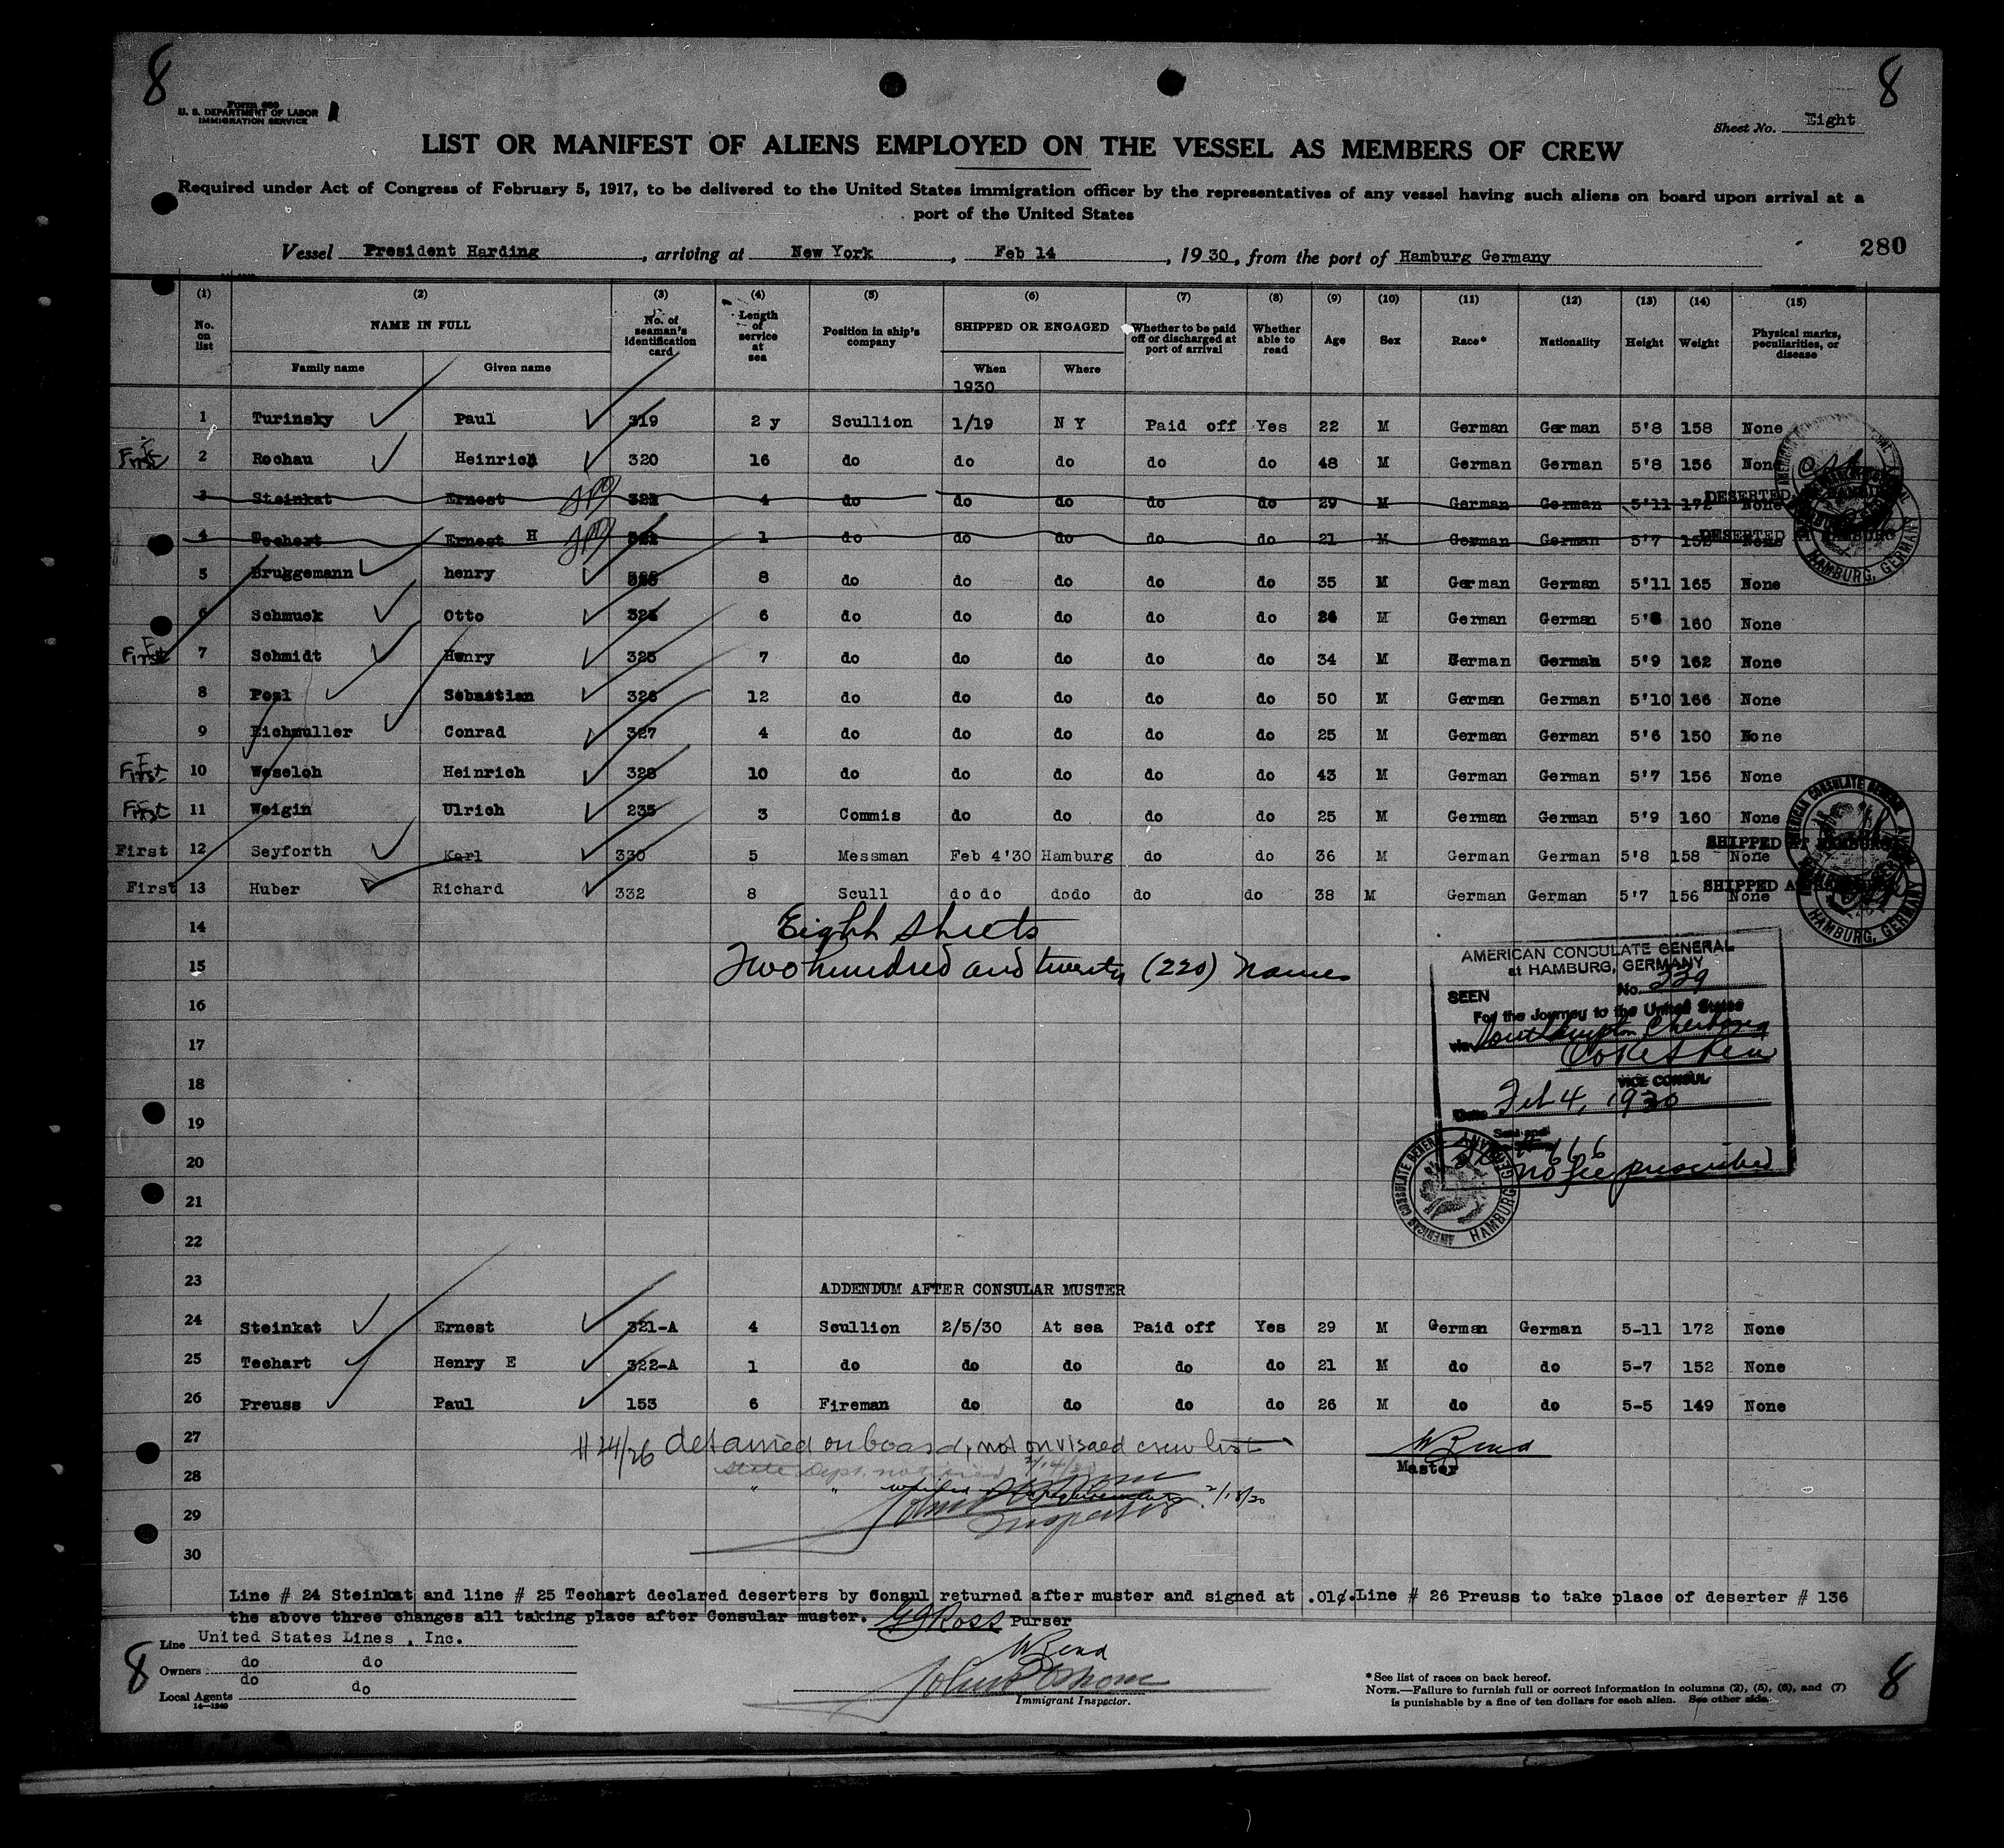 8 8
Form 689
U. S. DEPARTMENT OF LABOR
IMMIGRATION SERVICE
Sheet No. Eight
LIST OR MANIFEST OF ALIENS EMPLOYED ON THE VESSEL AS MEMBERS OF CREW
Required under Act of Congress of February 5, 1917, to be delivered to the United States immigration officer by the representatives of any vessel having such aliens on board upon arrival at a
port of the United States
Vessel President Harding, arriving at New York, Feb 14, 1930, from the port of Hamburg Germany
280
(1) (2) (3) (4) (5) (6) (7) (8) (9) (10) (11) (12) (13) (14) (15)
No. on list NAME IN FULL No. of seaman's identification card Length of service at sea Position in ship's company SHIPPED OR ENGAGED Whether to be paid off or discharged at port of arrival Whether able to read Age Sex Race* Nationality Height Weight Physical marks, peculiarities, or disease
Family name Given name When Where
1930
1 Turinsky Paul 319 2 y Scullion 1/19 N Y Paid off Yes 22 M German German 5'8 158 None
First 2 Rochau Heinrich 320 16 do do do do do 48 M German German 5'8 156 None
3 Steinkat Ernest 321 4 do do do do do 29 M German German 5'11 172 None DESERTED
4 Techert Ernest H 1 do do do do do 21 M German German 5'7 152 None DESERTED AT HAMBURG
5 Bruggemann henry 8 do do do do do 35 M German German 5'11 165 None
6 Schmuck Otto 6 do do do do do 26 M German German 5'8 160 None
First 7 Schmidt Henry 325 7 do do do do do 34 M German German 5'9 162 None
8 Posl Sebastian 326 12 do do do do do 50 M German German 5'10 166 None
9 Eichmuller Conrad 327 4 do do do do do 25 M German German 5'6 150 None
First 10 Weseloh Heinrich 328 10 do do do do do 43 M German German 5'7 156 None
First 11 Weigin Ulrich 235 3 Commis do do do do 25 M German German 5'9 160 None
First 12 Seyforth Karl 330 5 Messman Feb 4'30 Hamburg do do 36 M German German 5'8 158 None SHIPPED AT HAMBURG
First 13 Huber Richard 332 8 Scull do do dodo do do 38 M German German 5'7 156 None SHIPPED AT
14 Eight sheets
15 Two hundred and twenty (220) names
AMERICAN CONSULATE GENERAL
at HAMBURG, GERMANY
No. 229
SEEN
For the Journey to the United States
via Southampton Cherbourg
VICE CONSUL
Date Feb 4, 1930
no fee prescribed
AMERICAN CONSULATE GENERAL HAMBURG GERMANY
16
17
18
19
20
21
22
23 ADDENDUM AFTER CONSULAR MUSTER
24 Steinkat Ernest 321-A 4 Scullion 2/5/30 At sea Paid off Yes 29 M German German 5-11 172 None
25 Techart Henry E 322-A 1 do do do do do 21 M do do 5-7 152 None
26 Preuss Paul 153 6 Fireman do do do do 26 M do do 5-5 149 None
27 #24/26 detained on board, not on visaed crew list
28 State Dept. notified 2/14/30
Master
" " 2/18/30
29 Inspector
30
Line # 24 Steinkat and line # 25 Techart declared deserters by Consul returned after muster and signed at .01¢. Line # 26 Preuss to take place of deserter # 136
the above three changes all taking place after Consular muster. G J Ross Purser
Line United States Lines , Inc.
Owners do do
Local Agents do do
14—1240
Immigrant Inspector.
*See list of races on back hereof.
NOTE.—Failure to furnish full or correct information in columns (2), (5), (6), and (7)
is punishable by a fine of ten dollars for each alien. See other side.
8 8